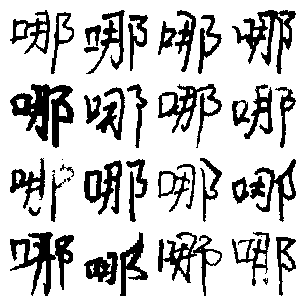 哪哪哪哪
哪哪哪哪
哪哪哪哪
哪哪哪哪